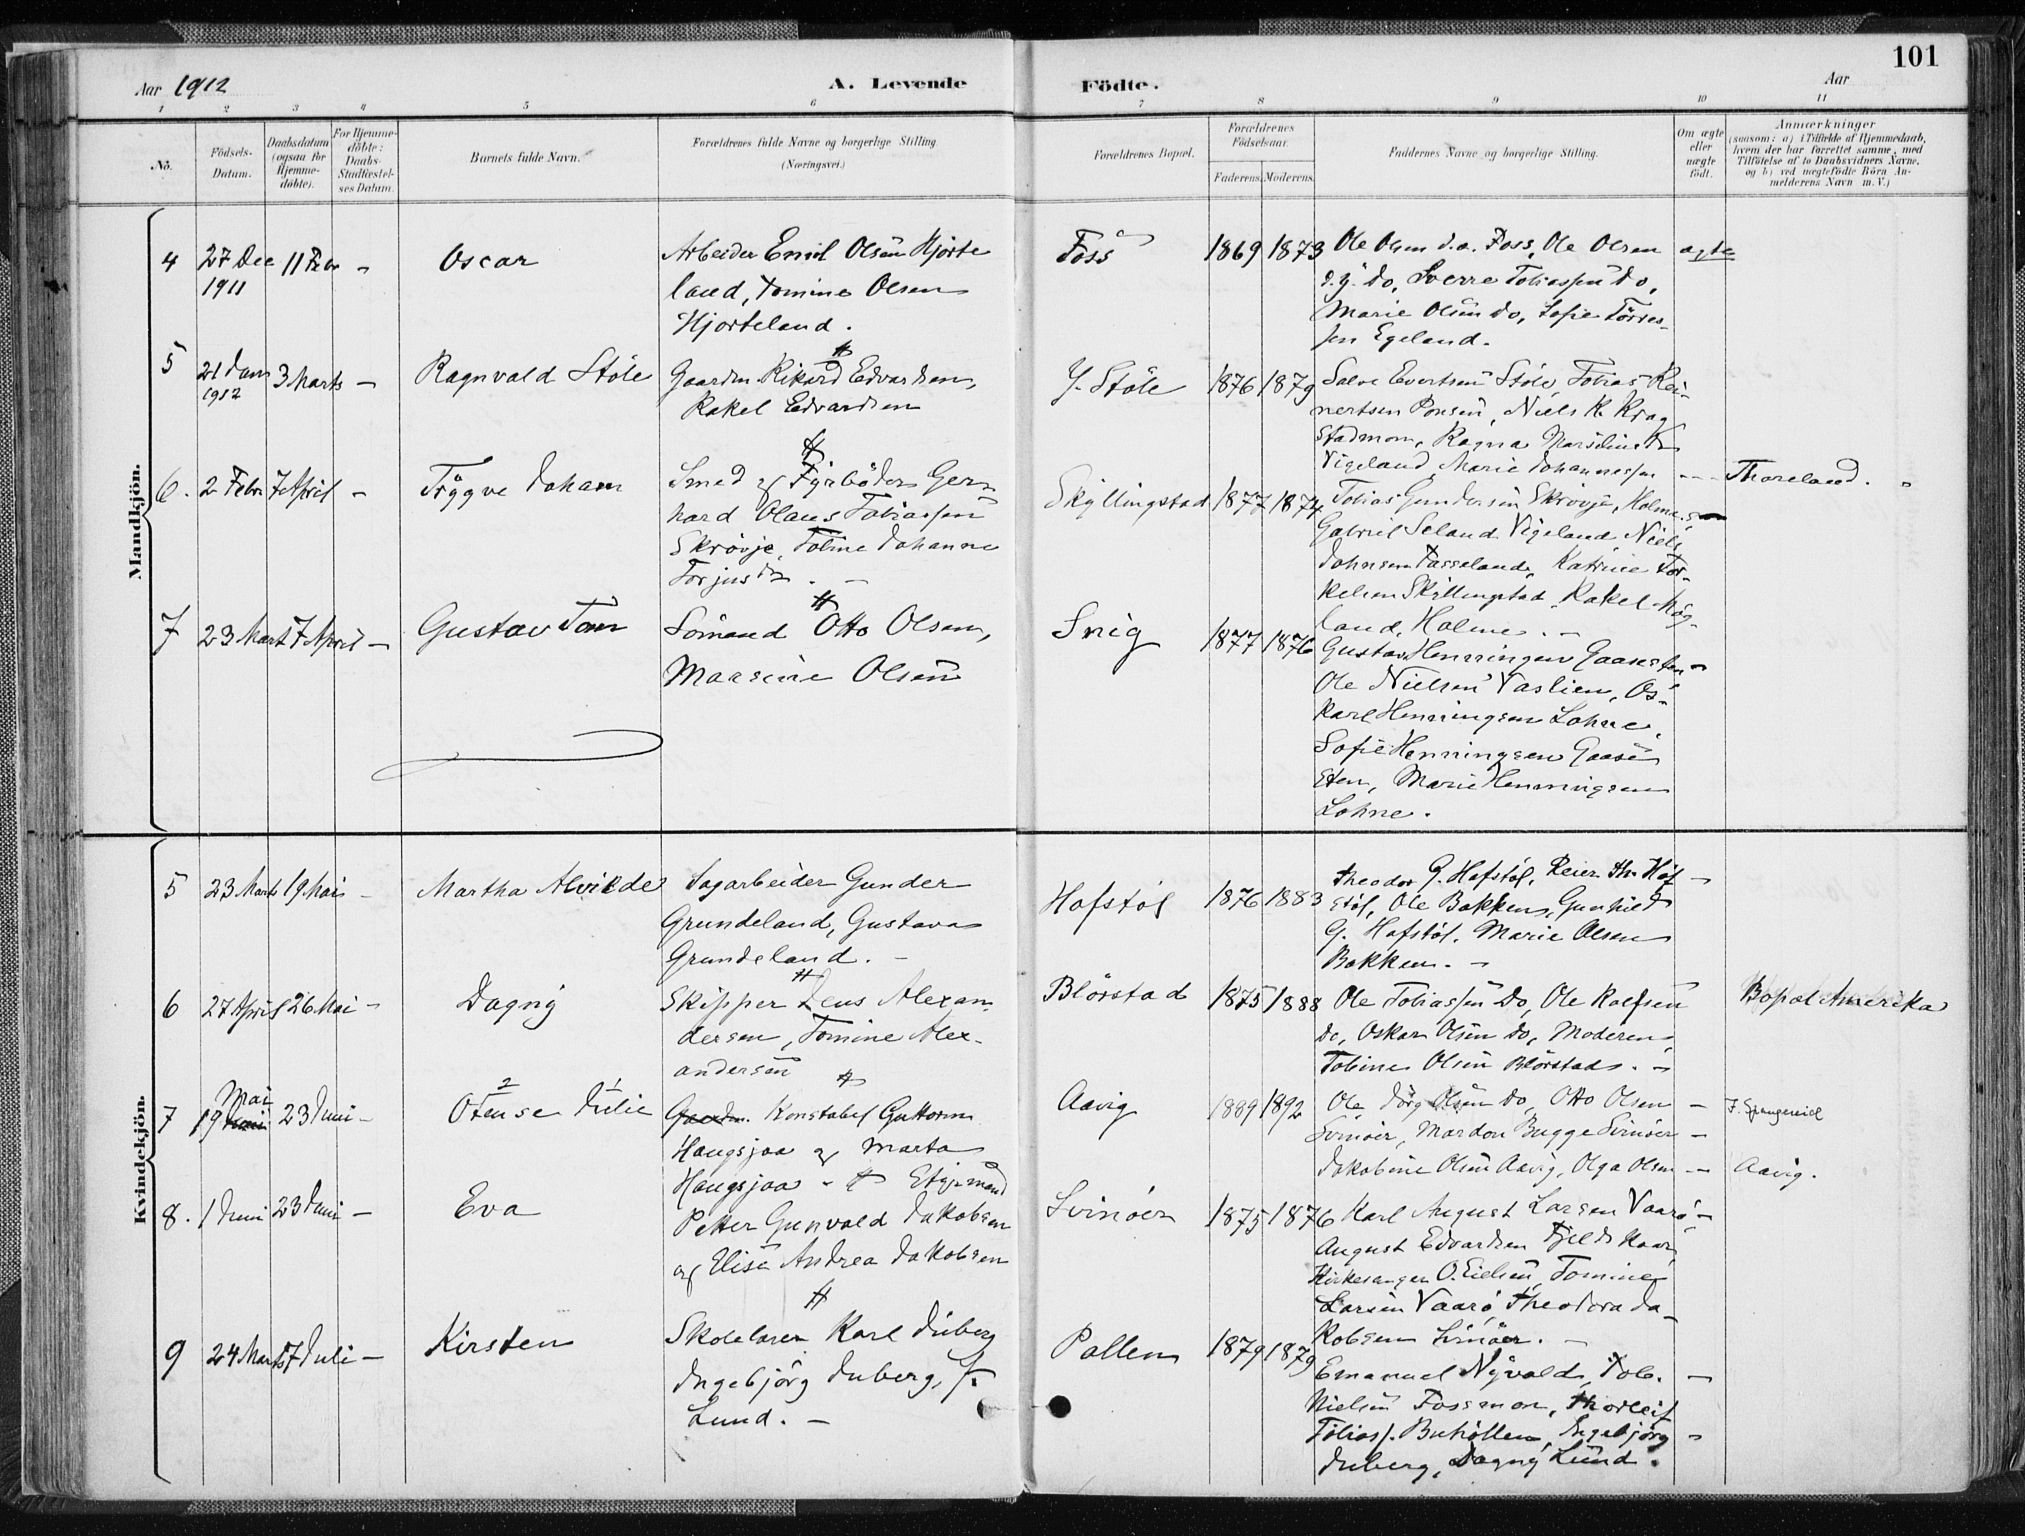 101
Aar 1912
A. Levende
Födte.
Aar
1 2 3 4 5 6 7 8 9 10 11
No.
Födsels-Datum.
Daabsdatum (ogsaa for Hjemme-döbte).
For Hjemme-döbte: Daabs-Stadfæstel-ses Datum.
Barnets fulde Navn.
Forældrenes fulde Navne og borgerlige Stilling
(Næringsvei.)
Forældrenes Bopæl.
Forældrenes Födselsaar.
Faderens. Moderens.
Faddernes Navne og borgerlige Stilling.
Om ægte eller uægte födt.
Anmærkninger
(saasom: a) i Tilfælde af Hjemmedaab,
hvem der har forrettet samme, med
Tilföielse af to Daabsvidners Navne,
og b) ved uægtefödte Börn An-
melderens Navn m. V.)
Mandkjön.
4 27 Dec 1911 11 Febr "
Oscar
Arbeider Emil Olsen Hjorte
land, Tomine Olsen
Hjorteland.
Foss
1869 1873
Ole Olsen d.æ. Foss, Ole Olsen
d.y. do, Sverre Tobiassen do,
Marie Olsen do, Sofie Törres-
sen Egeland.
ægte
5 21 Jan 1912 3 Marts -
Ragnvald Stöle
Gaardm. Rikard Edvardsen,
Rakel Edvardsen
Y. Stöle
1876 1879
Salve Evertsen Stöle, Tobias Rei-
nertsen Ponsen, Niels K. Krag
Stadmom, Ragna
Vigeland Marie Johannessen
Thoreland.
6. 2 Febr 7 April -
Tryggve Johan
Smed og Fyrböder Gern
hard Olaus Tobiassen
Skrövje, Toline Johanne
Torjusdr. -
Skyllingstad
1877 1874
Tobias Gundersen Skrövje, Holme,
Gabriel Seland Vigeland Niels
Johnsen Tasseland, Katrine Tor-
kelsen Skyllingstad, Rakel Hög-
land, Holme. -
7 23 Marts 7 April -
Gustav Tom
Sömand Otto Olsen,
Maarsine Olsen
Snig
1877 1876
Gustav Henningsen Gaasesten -
Ole Nielsen Vaslien, Os-
karl Henningsen Lohne,
Sofie Henningsen Gaase
sten, Marie Henningsen
Lohne.
Kvindekjön.
5 23 Marts 19 Mai -
Martha Alvilde
Sagarbeider Gunder
Grundeland, Gustava
Grundeland. -
Hafstöl
1876 1883
Theodor G. Hafstöl, Reier Th. Haf -
stöl, Ole Bakken, Gunhild
G. Hafstöl, Marie Olsen
Bakken. -
6 27 April 26 Mai -
Dagny
Skipper Jens Alexan-
dersen, Tomine Alex-
andersen
Blörstad
1875 1888
Ole Tobiassen do, Ole Rolfsen
do, Oskar Olsen do, Moderen,
Tobine Olsen Blörstad. -
Bopæl Amerika
7 19 Mai 23 Juni -
Otense Julie
Gaardm. Konstabel Guttorm
Haugsjaa og Marta
Haugsjaa -
Aavig
1889 1892
Ole, Jörg Olsen do, Otto Olsen -
Svinöer, Mardon Bugge Svinöer -
Jakobine Olsen Aavig, Olga Olsen -
F. Spangereid
Aavig.
8. 1 Juni 23 Juni -
Eva
Petter Gunvald Jakobsen
og Elise Andrea Jakobsen
Svinöer
1875 1876
Karl August Larsen Vaarö -
August Edvardsen
Kirkesanger O. Eielsen, Tomine
Larsen Vaarö, Theodora Ja-
kobsen Svinöer. -
9 24 Marts 7 Juli -
Kirsten
Skolelærer Karl Duberg
Ingebjörg Duberg, f.
Lund. -
Pollen
1879 1879
Emanuel Nyvold, Tob. -
Nielsen Fossmon, Thorleif
Tobiass. Buhöllen, Ingebjörg -
Duberg, Dagny Lund.